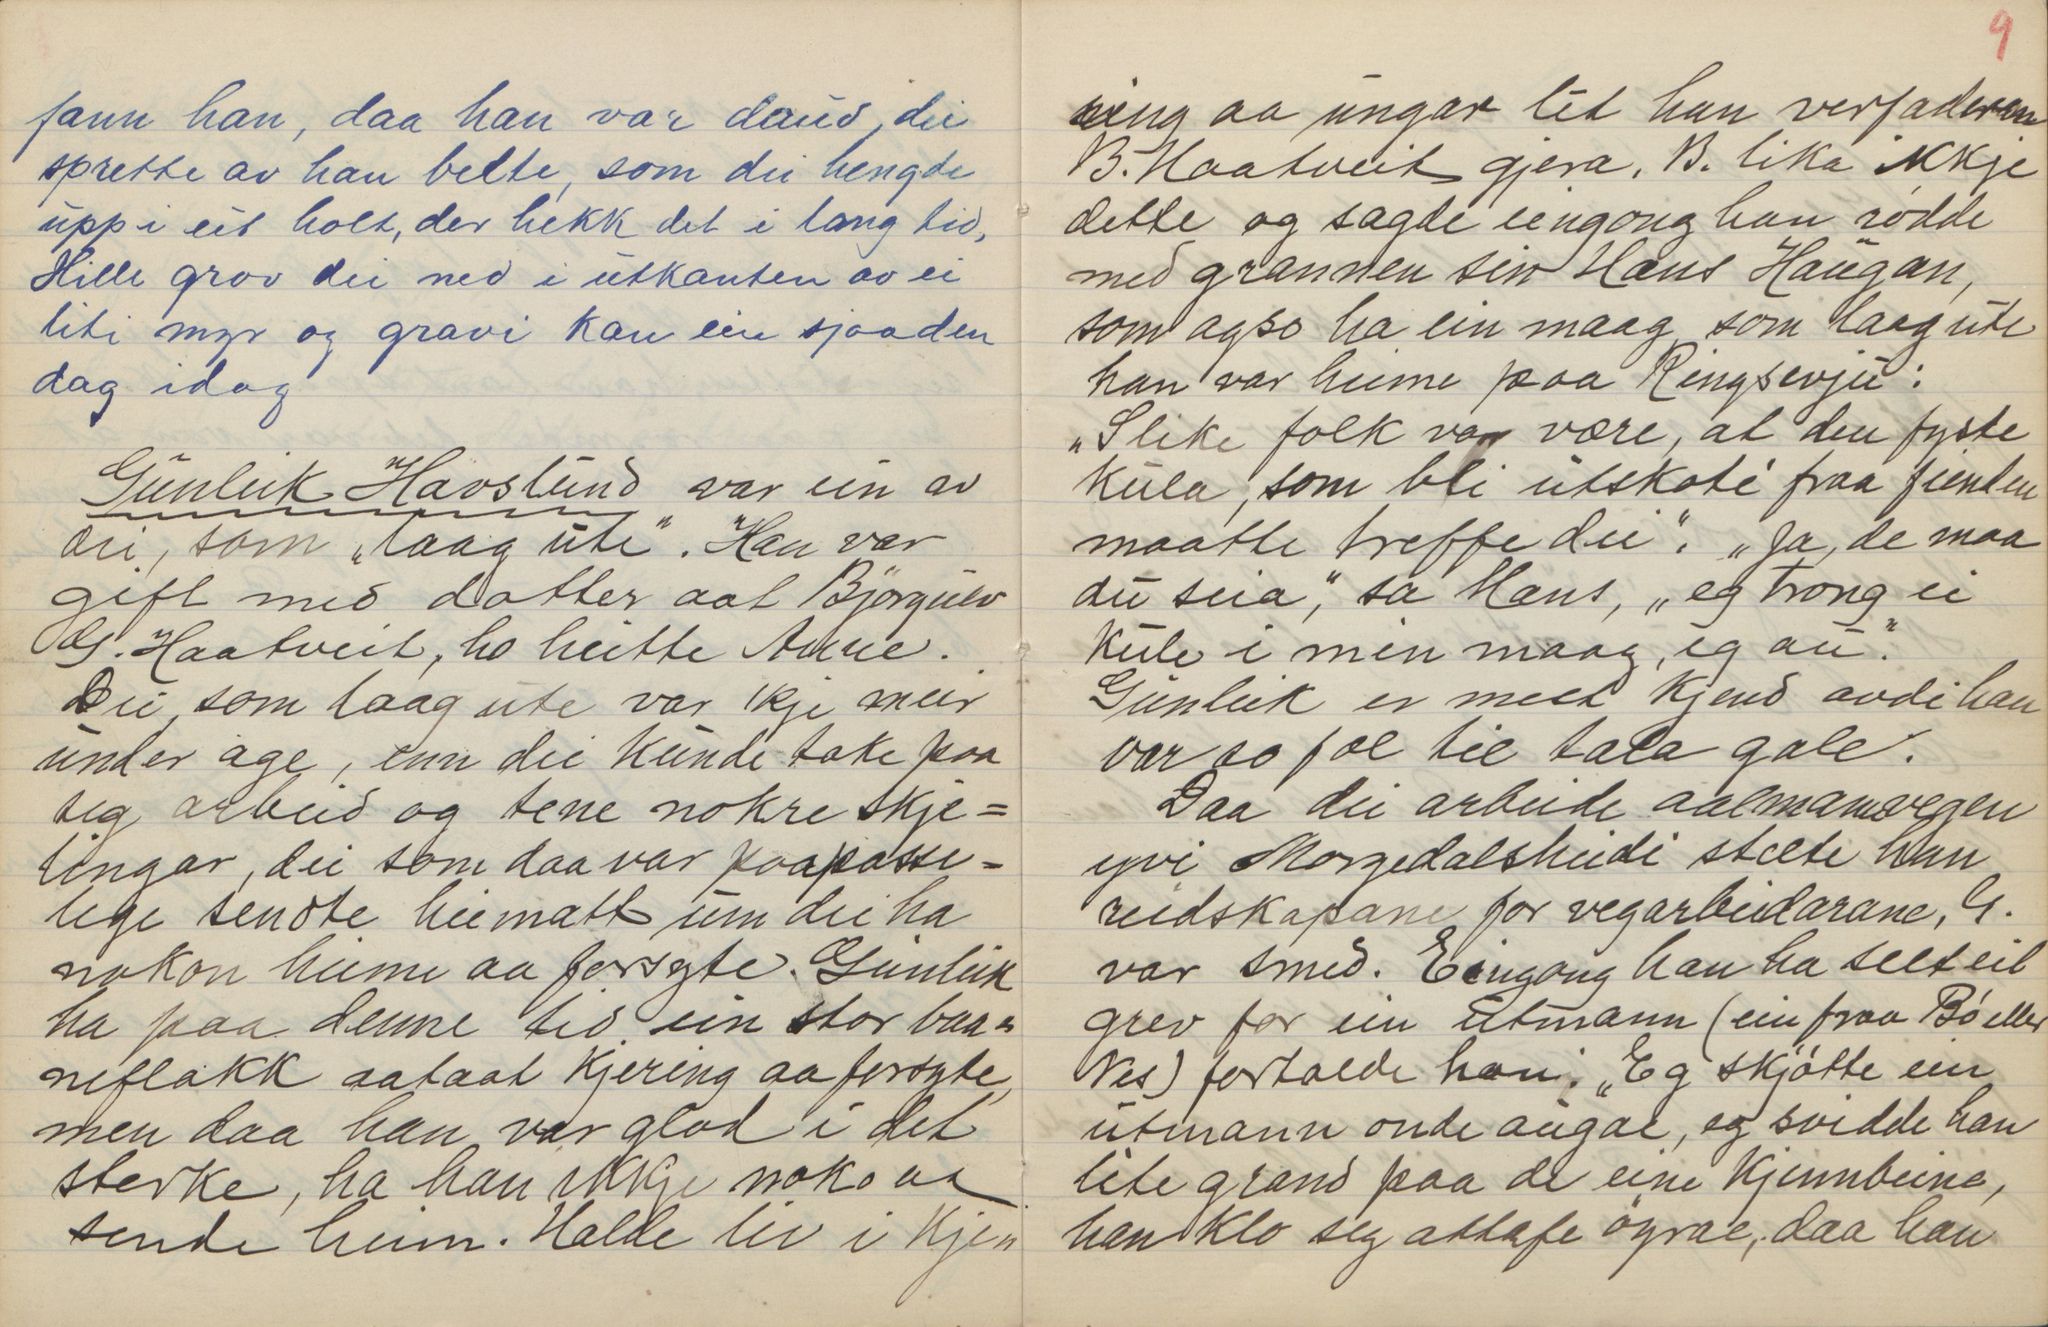 fann han, daa han var daud, dei
sprette av han belte, som dei hengde
upp i eit holt, der hekk det i lang tid,
Hille grov dei ned i utkanten av ei
liti myr og gravi kan ein sjaa den
dag idag
Gunleik Havslund var ein av
dei, som „laag ute". Han var
gift med dotter aat Björgulv
G. Haatveit, ho heitte Anne.
Dei, som laag ute var 'kje meir
under age, enn dei kunde take paa
seg arbeid og tene nokre skje=
lingar, dei som daa var paapasse=
lige sendte heimatt um dei ha
nokon heime aa forsyte. Gunleik
ha paa denne tid ein stor baa=
neflakk aataat kjering aa forsyte,
men daa han var glad i det
sterke, ha han ikkje noko at
sende heim. Halde liv i kje=
9
ring aa ungar let han verfaderen
B. Haatveit gjera. B. lika ikkje
dette og sagde eingong han rødde
med grannen sin Hans Haugan,
som agso ha ein maag som laag ute
han var heime paa Ringsevju:
„Slike folk var være, at den fyste
kula, som bli utskoti fraa fienden
maatte treffe dei". „Ja, de maa
du seia," sa Hans, „eg trong ei
kule i min maag, eg au".
Gunleik er mest kjend avdi han
var so fæl til tala gale.
Daa dei arbeide aalmannvegen
yvi Morgedalsheidi stelte han
reidskapane for vegarbeidarane, G.
var smed. Eingong han ha stelt eit
grev for ein utmann (ein fraa Bø eller
Nes) fortalde han: „Eg skjótte ein
utmann onde augae, eg svidde han
lite grand paa de eine kjinnbeine,
han klo seg attafe öyrae, daa han